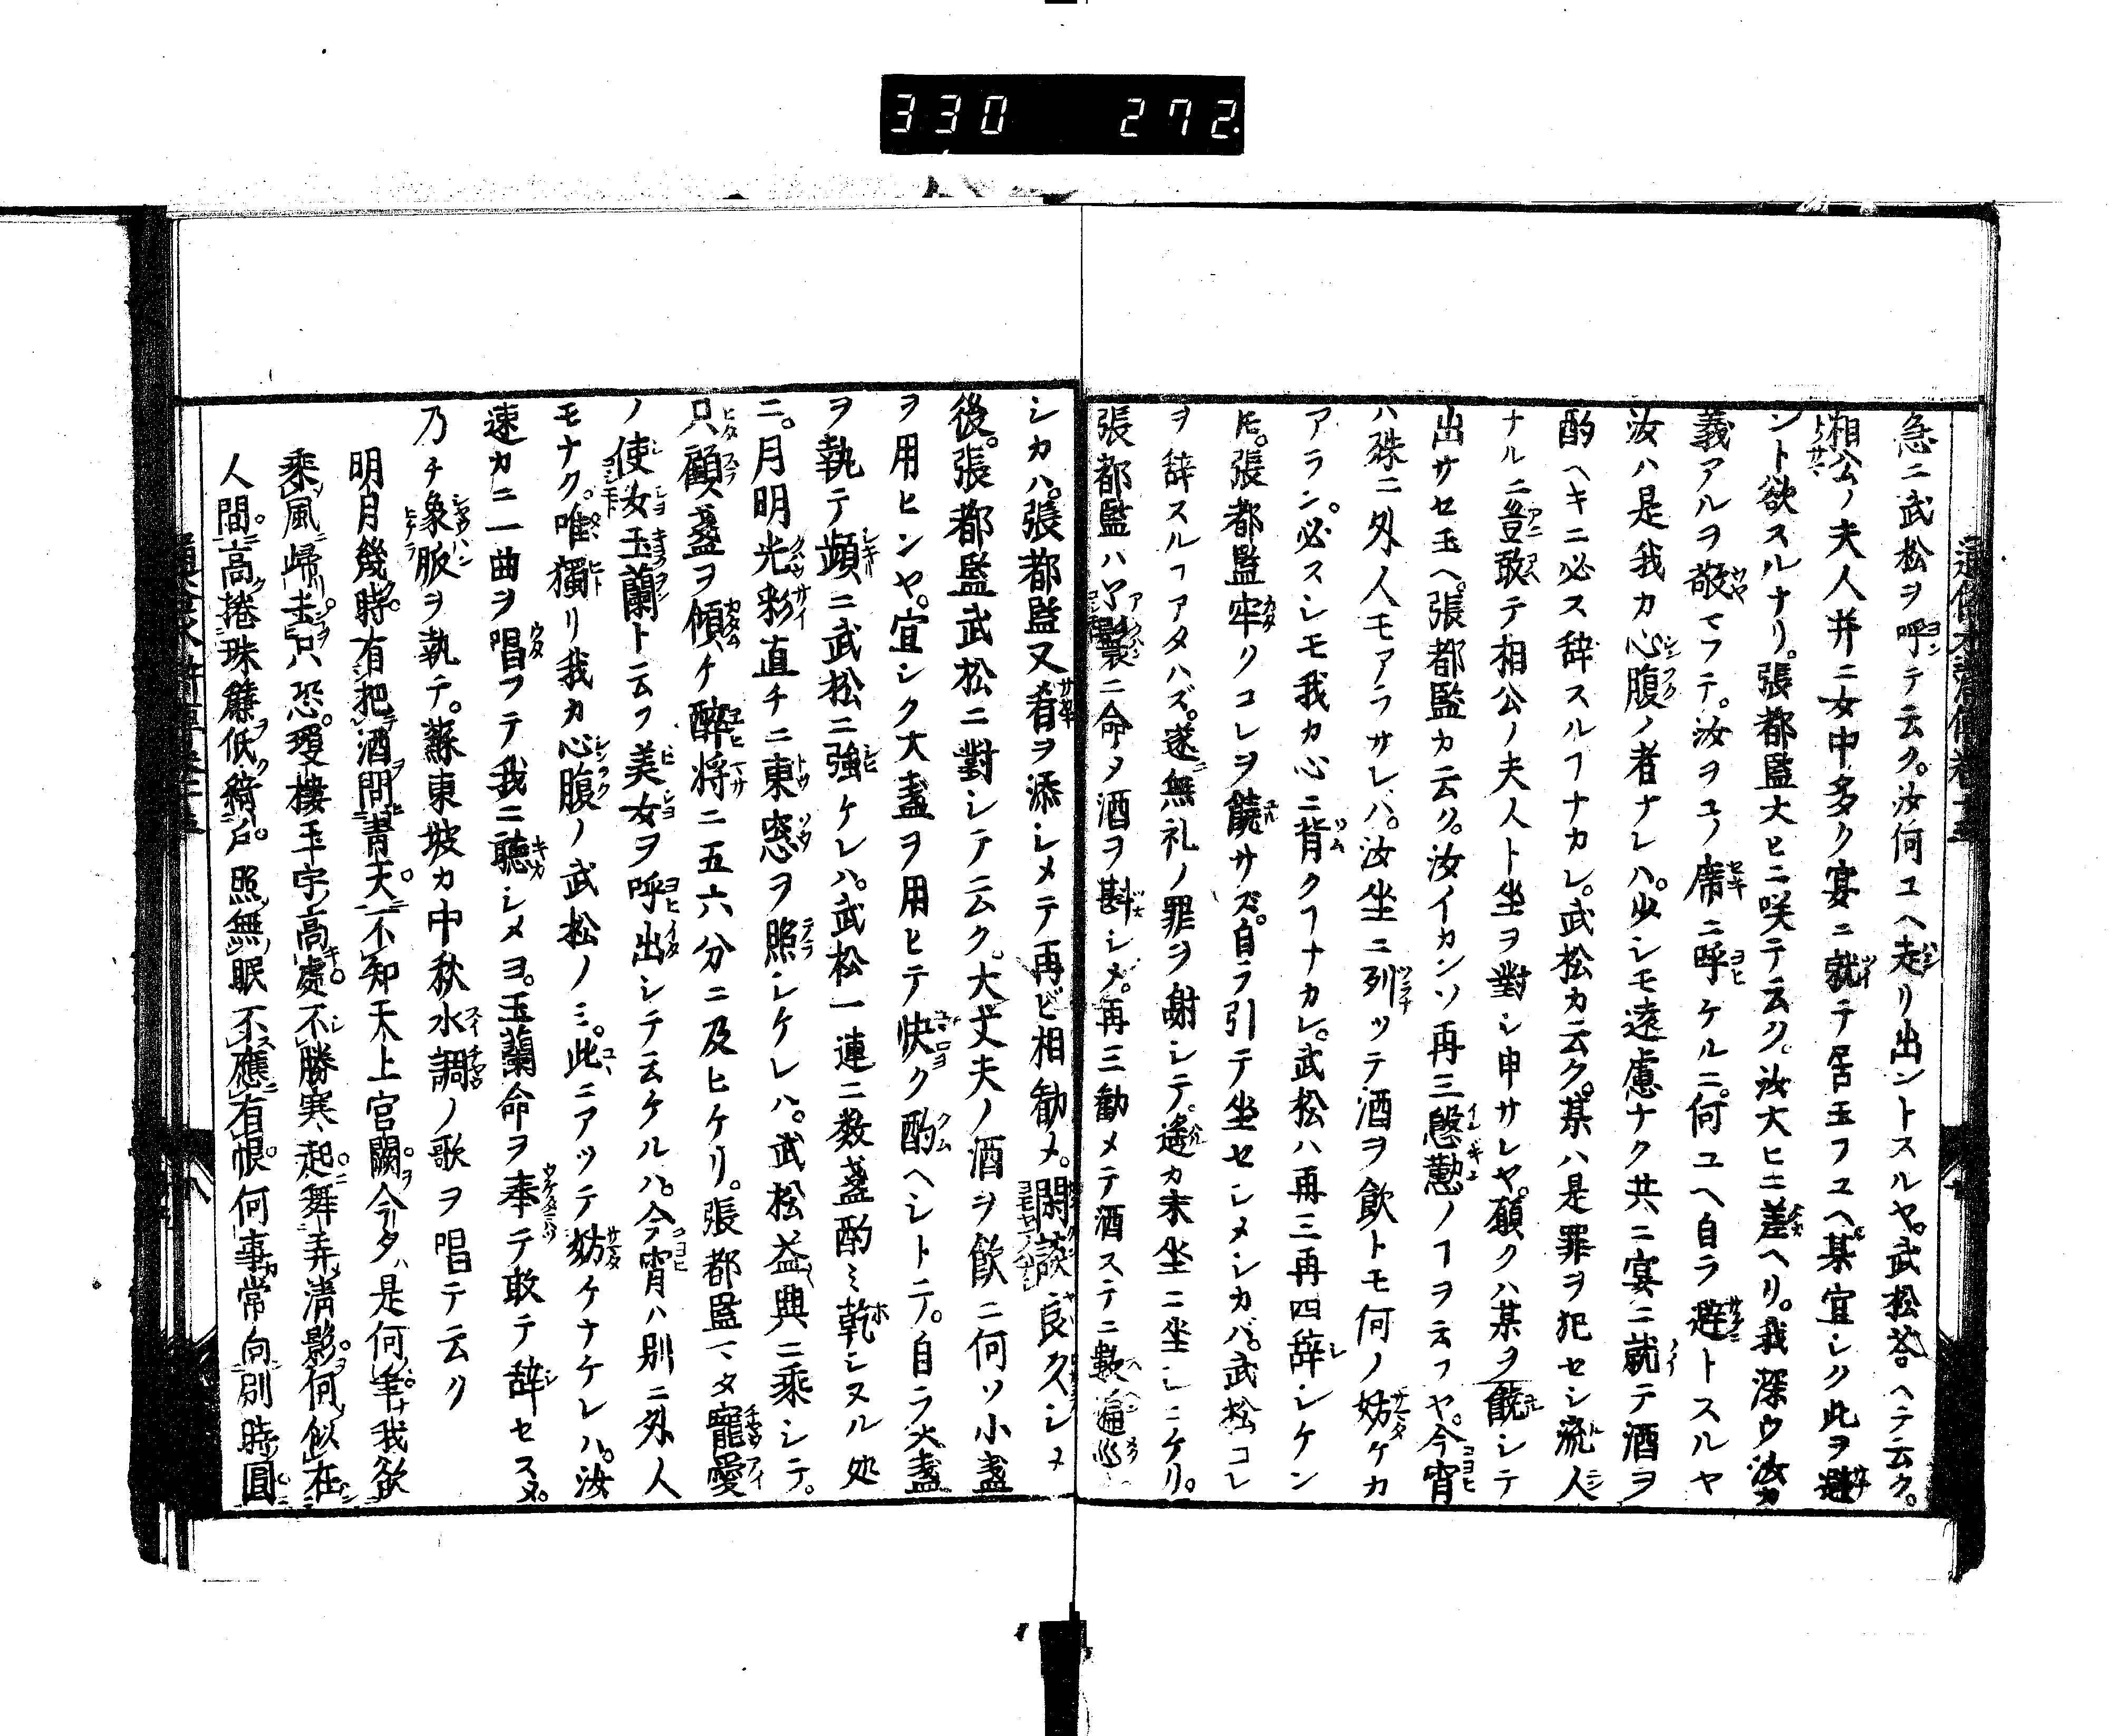 330 272.
急ニ武松ヲ呼テ云ク。汝何ユヘ走リ出ントスルヤ。武松答ヘテ云ク。
相公ノ夫人并ニ女中多ク宴ニ就テ居玉フユヘ。某宜シク此ヲ避
ント欲スルナリ。張都監大ヒニ咲テ云ク。汝大ヒニ差ヘリ。我深ウ汝カ
義アルヲ敬マフテ。汝ヲコノ席ニ呼ケルニ。何ユヘ自ラ避トスルヤ
汝ハ是我カ心腹ノ者ナレハ。少シモ遠慮ナク共ニ宴ニ就テ酒ヲ
酌ヘキニ必ス辞スルヿナカレ。武松カ云ク。某ハ是罪ヲ犯セシ流人
ナルニ豈敢テ相公ノ夫人ト坐ヲ對シ申サレヤ。願クハ某ヲ饒シテ
出サセ玉ヘ。張都監カ云ク。汝イカンソ再三慇懃ノヿヲ云フヤ。今宵
ハ殊ニ外人モアラサレハ。汝坐ニ列ツテ酒ヲ飲トモ何ノ妨ケカ
アラン。必スシモ我カ心ニ背クヿナカレ。武松ハ再三再四辞シケン
𪜈。張都監牢クコレヲ饒サズ。自ラ引テ坐セシメシカバ。武松コレ
ヲ辞スルヿアタハズ。遂ニ無礼ノ罪ヲ謝シテ。遙カ末坐ニ坐シニケリ。
張都監ハ丫鬟ニ命メ酒ヲ斟シメ。再三勧メテ酒ステニ數遍巡
シカハ。張都監又肴ヲ添シメテ再ビ相勧メ。閑談良久シメ
後。張都監武松ニ對シテ云ク。大丈夫ノ酒ヲ飲ニ何ソ小盞
ヲ用ヒンヤ。宜シク大盞ヲ用ヒテ快ク酌ヘシトテ。自ラ大盞
ヲ執テ頻ニ武松ニ強ケレハ。武松一連ニ数盞酌ミ乾シヌル処
ニ。月明光彩直チニ東窓ヲ照シケレハ。武松益興ニ乗シテ。
只顧盞ヲ傾ケ醉将ニ五六分ニ及ヒケリ。張都監マタ寵愛
ノ使女玉蘭ト云フ美女ヲ呼出シテ云ケルハ。今宵ハ別ニ外人
モナク。唯獨リ我カ心腹ノ武松ノミ。此ニアツテ妨ケナケレハ。汝
速カニ一曲ヲ唱フテ我ニ聽シメヨ。玉蘭命ヲ奉テ敢テ辞セスヌ。
乃チ象版ヲ執テ。蘇東坡カ中秋水調ノ歌ヲ唱テ云ク
明月幾時有。把酒問青天。不知天上宮闕。今夕是何年。我欲
乘風歸去。只恐。瓊樓玉宇。高處不勝寒。起舞弄清影。何似在
人間。高捲珠簾。低綺戸。照無眠。不應有恨。何事常向別時圓